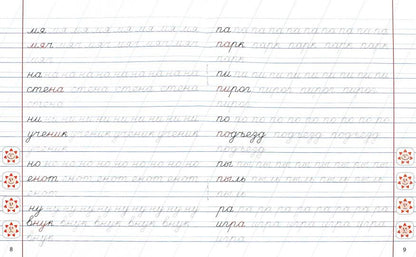 мя мя мя мя мя мя мя мя
мяч мяч мяч мяч мяч мяч
мяч
на на на на на на на на на
стена стена стена стена
стена
ни ни ни ни ни ни ни ни
ученик ученик ученик ученик
ученик
но но но но но но но но
енот енот енот енот енот
енот
ну ну ну ну ну ну ну ну
внук внук внук внук внук
внук
8
па па па па па па па па па па
парк парк парк парк парк
парк
пи пи пи пи пи пи пи пи
пирог пирог пирог пирог
пирог
по по по по по по по по по
подъезд подъезд подъезд
подъезд
пы пы пы пы пы пы пы
пыль пыль пыль пыль пыль
пыль
ра ра ра ра ра ра ра ра ра
игра игра игра игра игра
игра
9